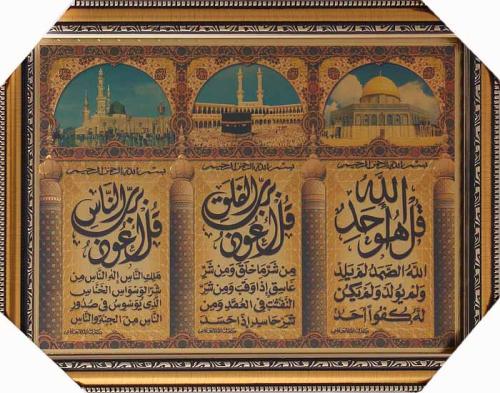 بسم الله الرحمن الرحيم
قل هو الله احد
الله الصمد لم يلد
ولم يولد ولم يكن
له كفوا احد
بسم الله الرحمن الرحيم
قل اعوذ برب الفلق
من شر ما خلق ومن شر
غاسق اذا وقب ومن شر
النفثت في العقد ومن
شر حاسد اذا حسد
بسم الله الرحمن الرحيم
قل اعوذ برب الناس
ملك الناس اله الناس من
شر الوسواس الخناس
الذي يوسوس في صدور
الناس من الجنة والناس